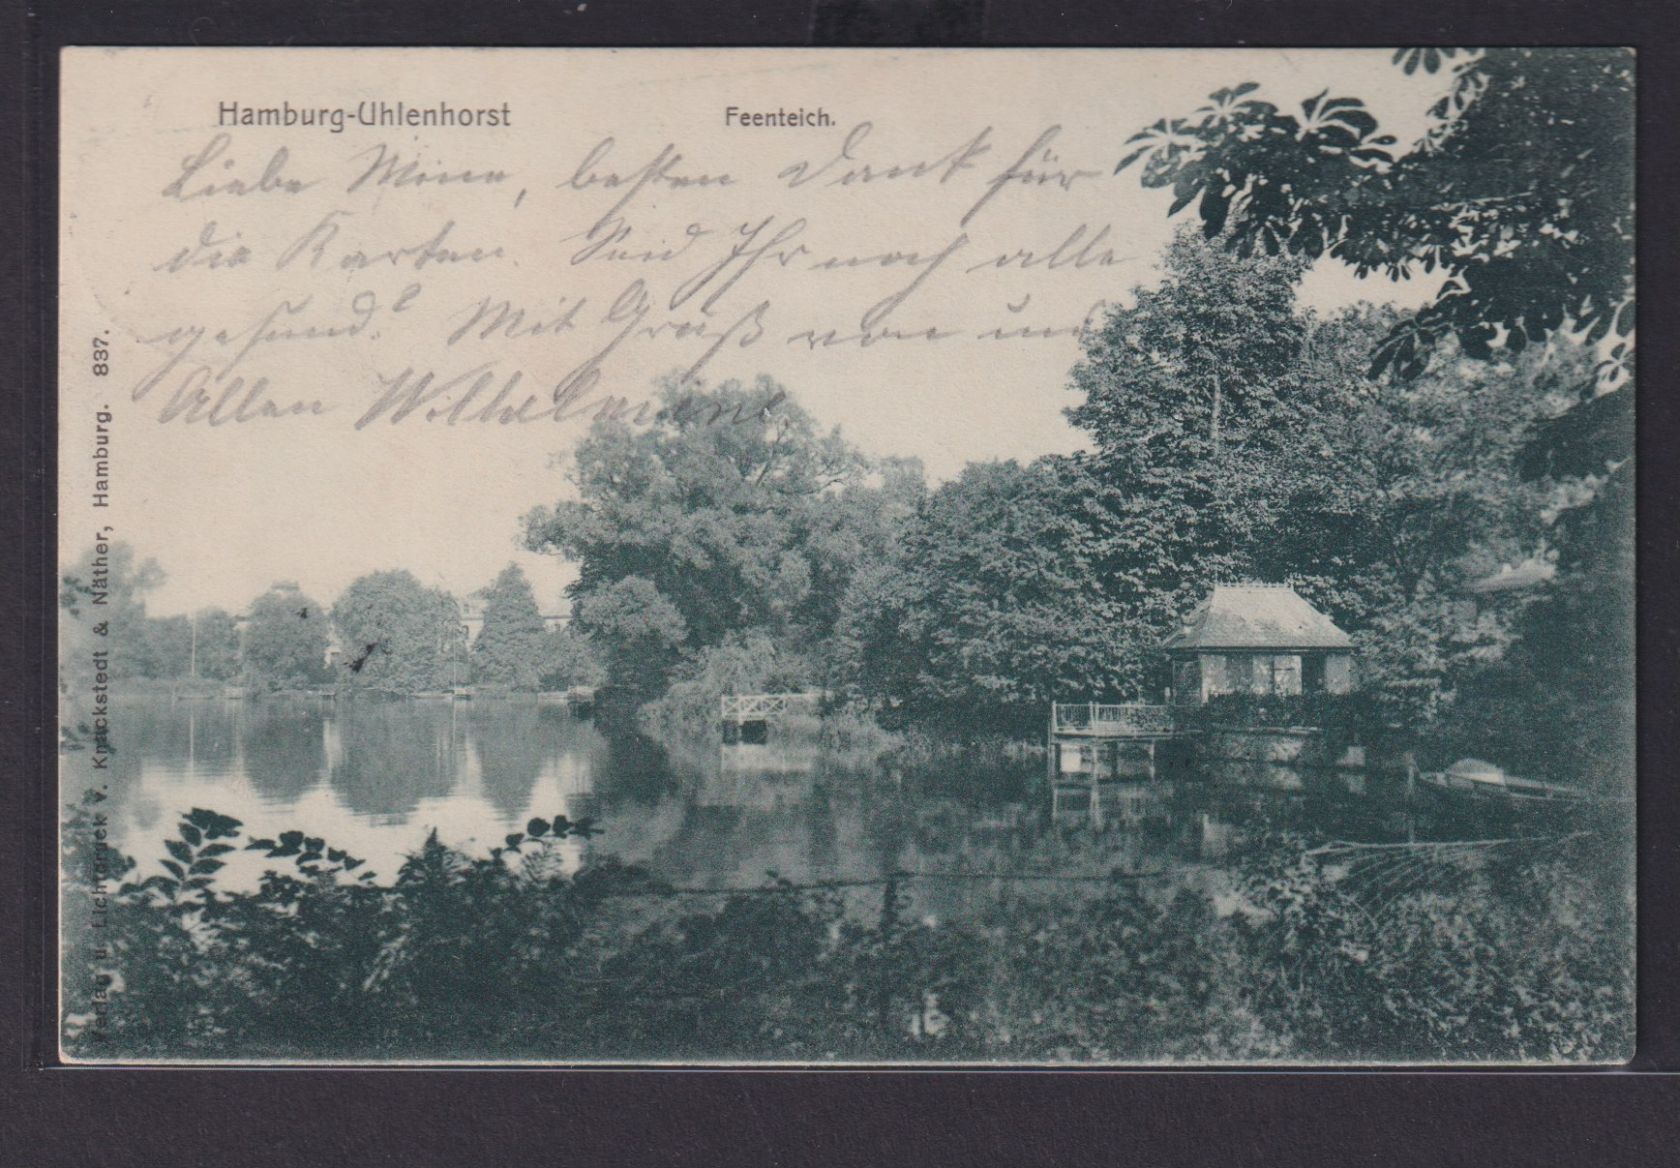 Hamburg-Uhlenhorst Feenteich.
Liebe Mine, besten Dank für
die Karten. Seid Ihr noch alle
gesund? Mit Gruß von uns
Allen Wilhelmine.
Verlag u. Lichtdruck v. Knackstedt & Näther, Hamburg. 837.